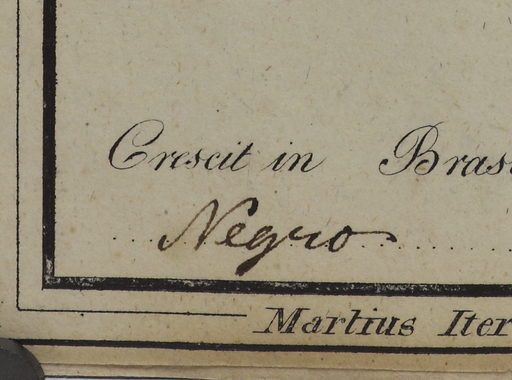 Crescit in Bras
Negro
Martius Iter